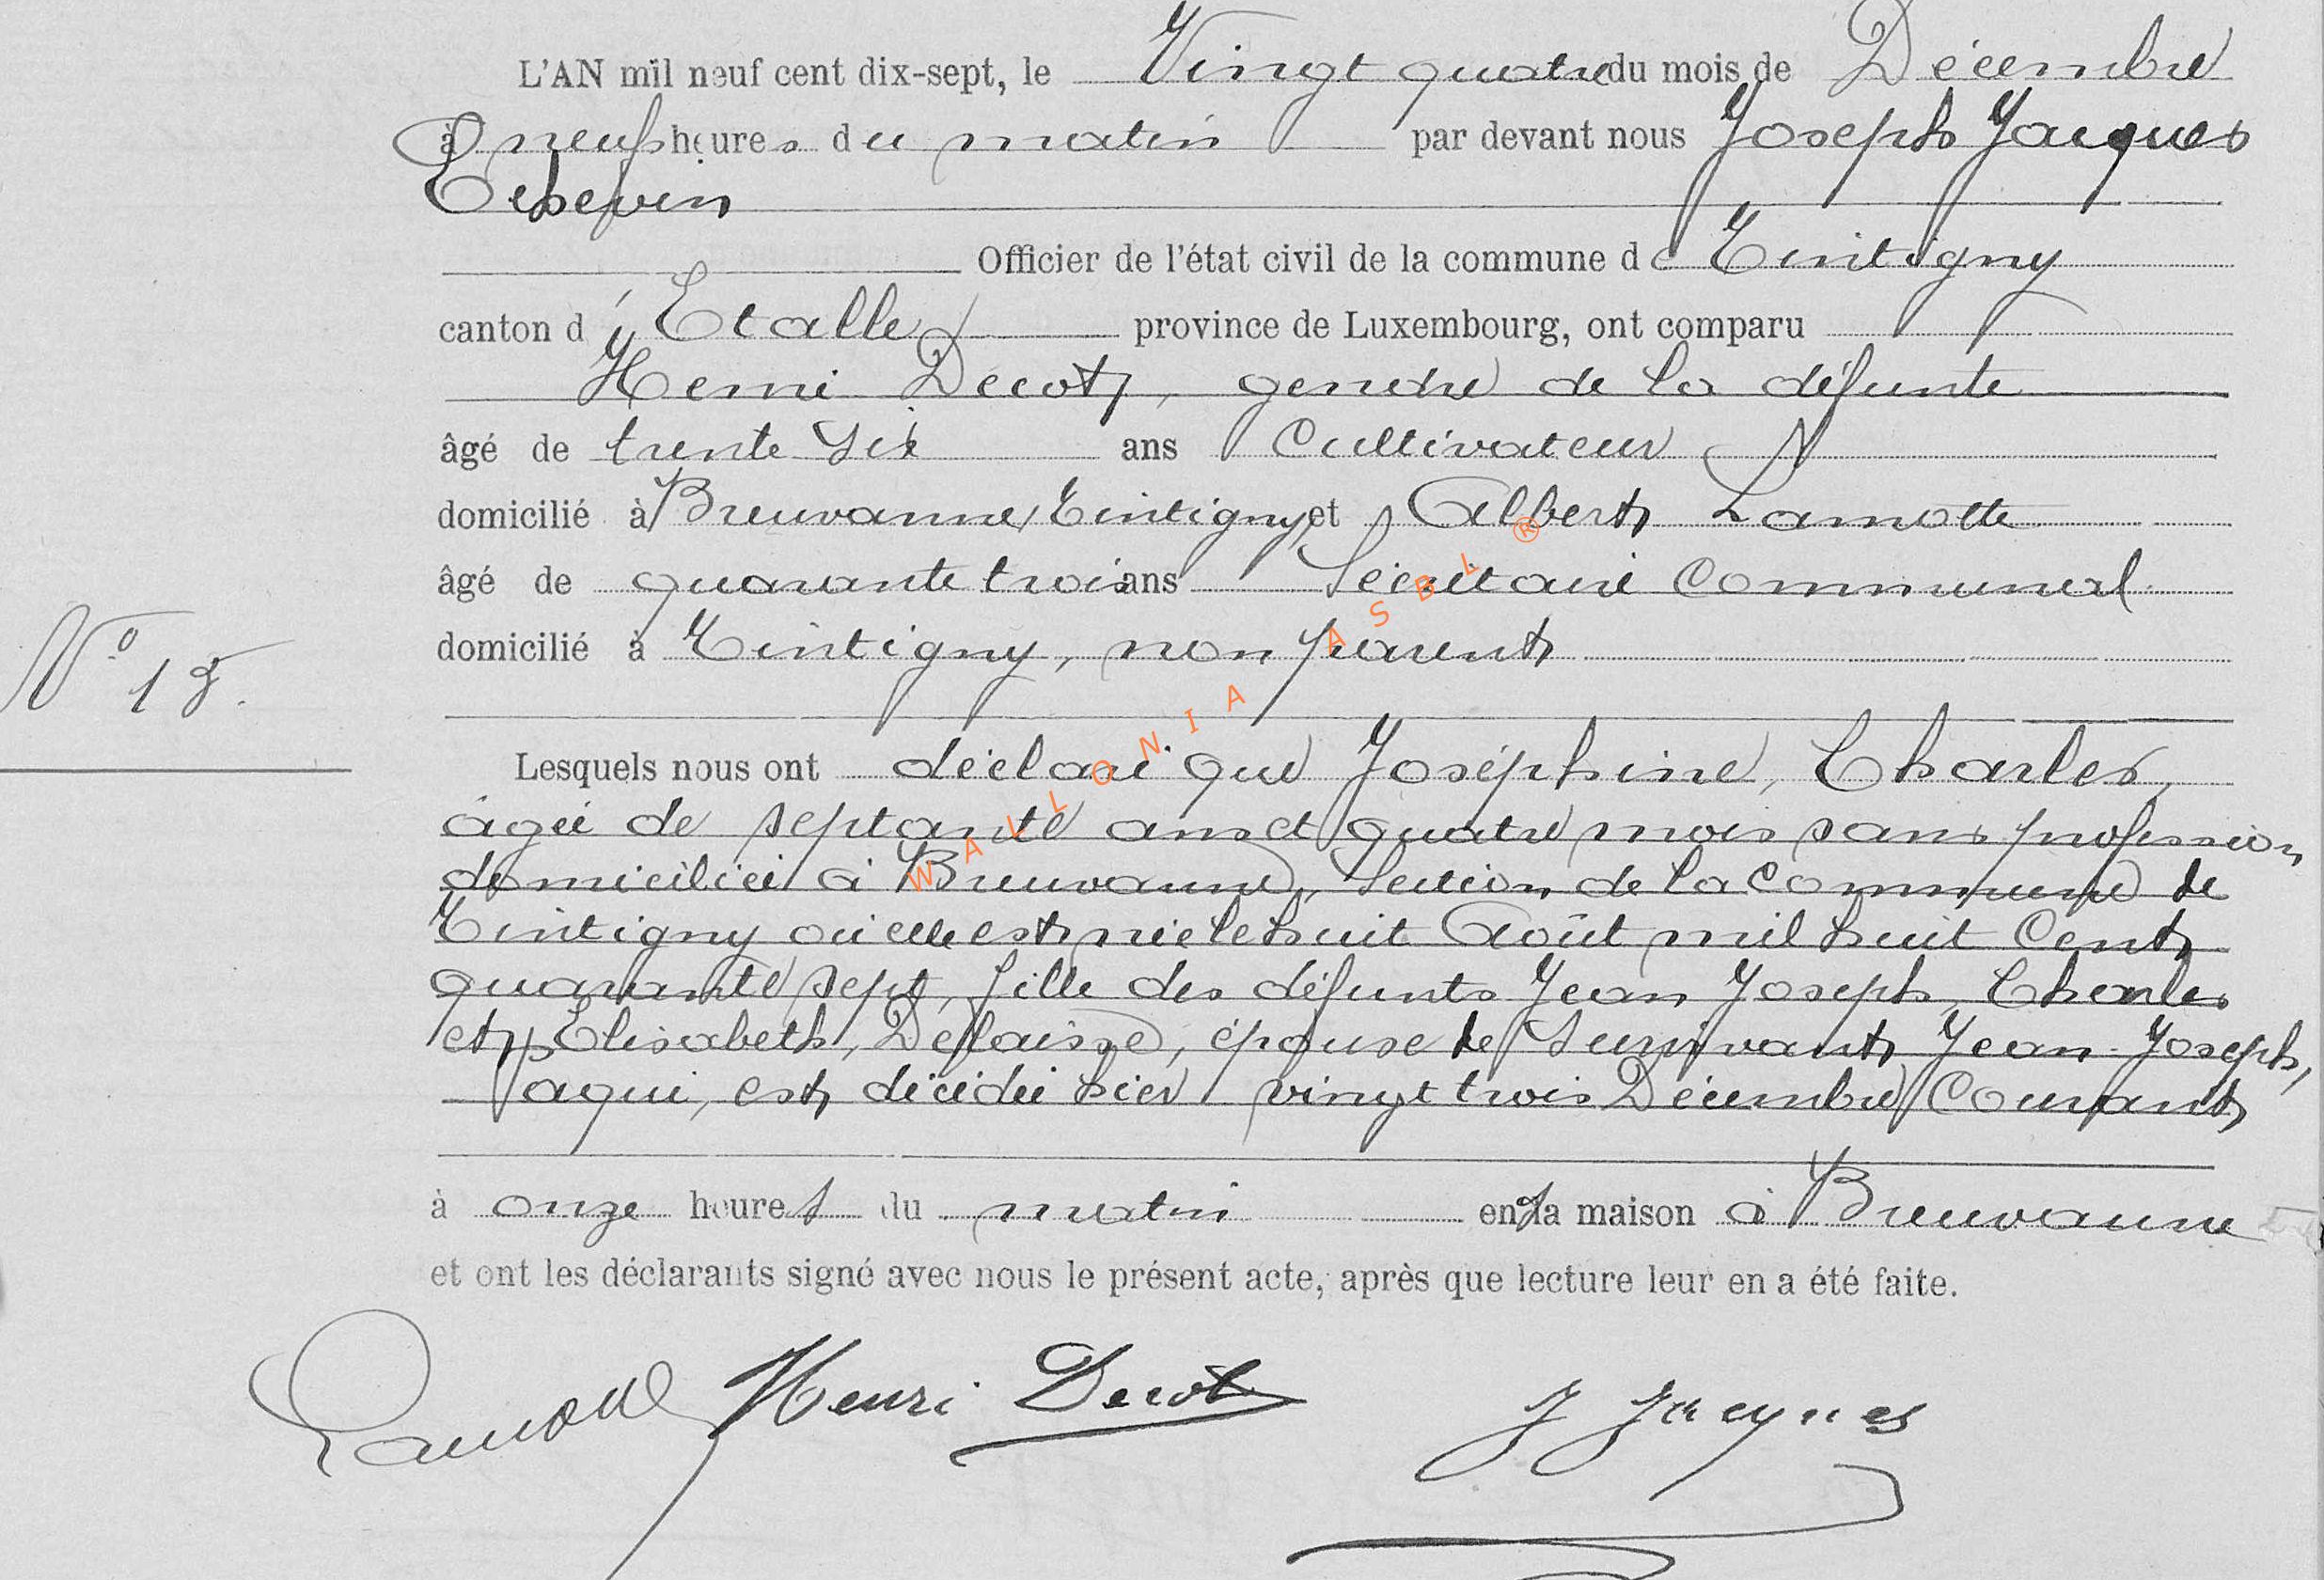 L'AN mil neuf cent dix-sept, le Vingt quatre du mois de Décembre
à neuf heures du matin par devant nous Joseph Jacques
Echevin
Officier de l'état civil de la commune de Tintigny
canton d'Etalle province de Luxembourg, ont comparu
Henri Decot, gendre de la défunte
âgé de trente six ans Cultivateur
domicilié à Breuvanne, Tintigny, et Albert Lamotte
âgé de quarante trois ans Secrétaire Communal
domicilié à Tintigny, non parent
Nº
Lesquels nous ont déclaré que Joséphine, Charles,
âgée de septante ans et quatre mois sans profession
domiciliée à Breuvanne, Section de la Commune de
Tintigny où elle est née le huit Août mil huit Cent
quarante sept, fille des défunts Jean Joseph, Charles
et Elisabeth, Deflaisse, épouse de Survivant Jean-Joseph,
Paqui, est décédée hier vingt trois Décembre Courant
à onze heures du matin en sa maison à Breuvanne
et ont les déclarants signé avec nous le présent acte, après que lecture leur en a été faite.
Lamotte Henri Decot J Jacques
WALLONIA ASBL ®